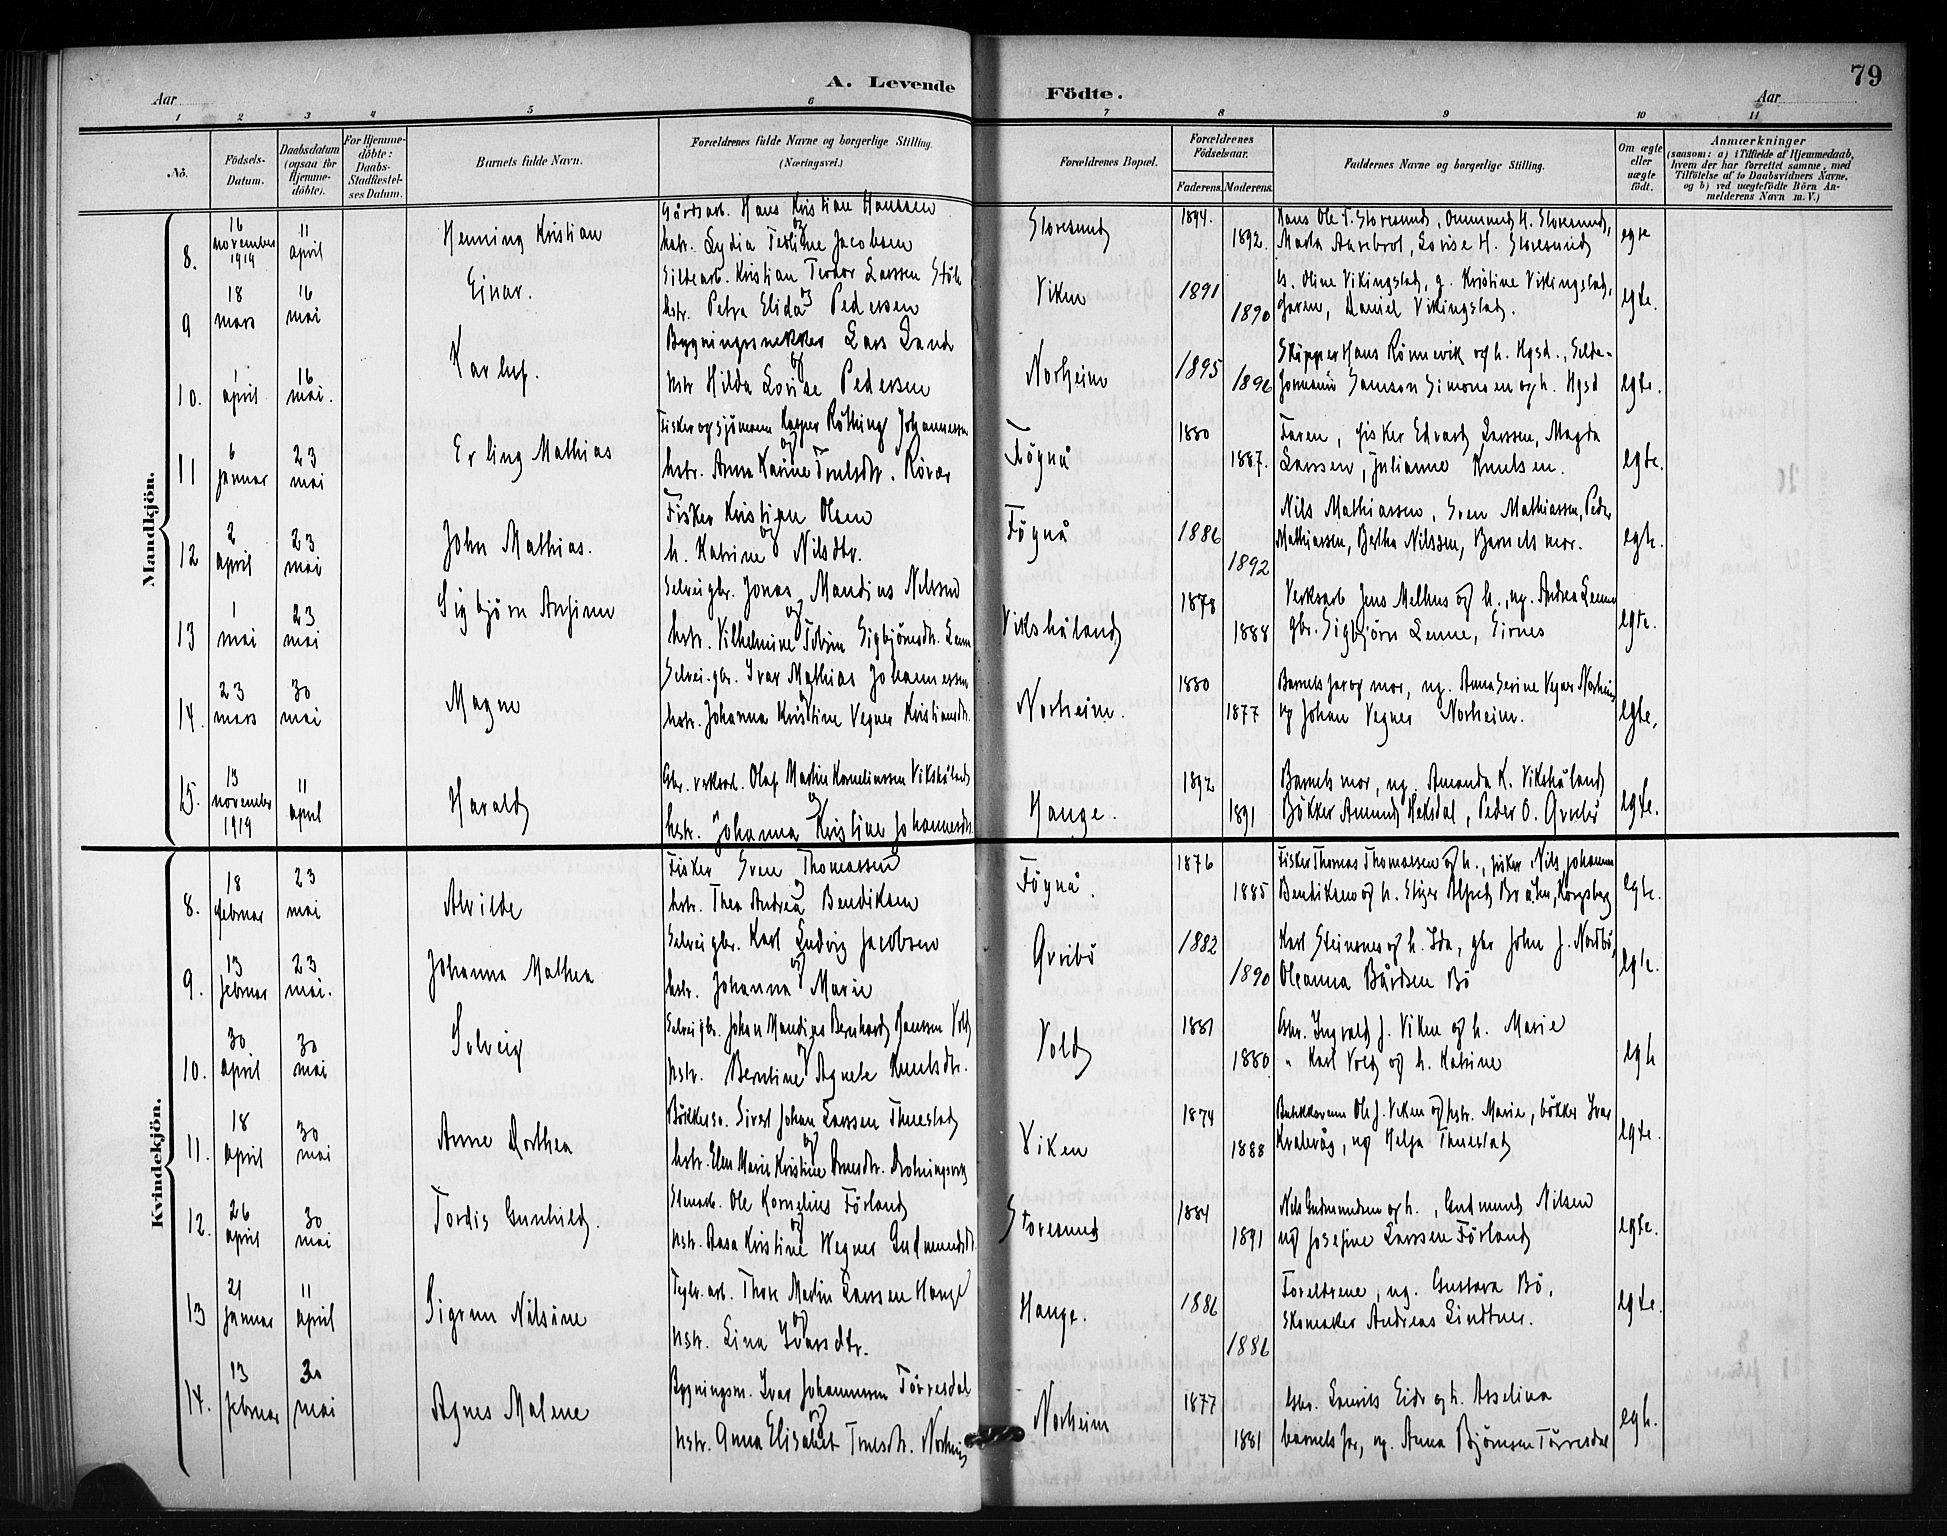 79
A. Levende Födte.
Aar
Aar
1 2 3 4 5 6 7 8 9 10 11
No.
Födsels-Datum.
Daabsdatum (ogsaa för Hjemme-döbte).
For Hjemme-döbte: Daabs-Stadfæstel-ses Datum.
Barnets fulde Navn.
Forældrenes fulde Navne og borgerlige Stilling. (Næringsvei.)
Forældrenes Bopæl.
Forældrenes Födselsaar.
Faderens. Moderens.
Faddernes Navne og borgerlige Stilling.
Om ægte eller uægte födt.
Anmærkninger
(saasom: a) i Tilfælde af Hjemmedaab, hvem der har forrettet samme, med Tilföielse af to Daabsvidners Navne, og b) ved uægtefödte Börn An-melderens Navn m. V.)
Mandkjön.
8. 16 november 1919 11 april Henning Kristian
Hans Kristian Hanssen
og
hstr. Lydia Jacobsen
Storesund 1894. 1892.
Hans Ole T. Storesund, H. Storesund,
Marta Lovise H. Storesund
egte
9 18 mars 16 mai Einar.
Sildearb. Kristian Teodor Larssen
og
hstr. Petra Elida Pedersen
Viken 1891 1890
Oline Vikingstad, g. Kristine Vikingstad,
Faren, Daniel Vikingstad.
egte.
10. 1 april 16 mai.
Bygningssnekker Lars
og
hstr Hilda Lovise Pedersen
Norheim 1895 1896
Skipper Hans Rönnevik og h. Hgsd., Silde-
formann Samson Simonsen og h. Hgsd
egte.
11 6 januar 23 mai Erling Mathias
Fisker og sjömann Kasper Röthing Johannessen
og
hstr. Anna Karine Truelsdtr. Rövær
Föynå 1880 1887.
Faren, fisker Edvard Larssen, Magda
Larssen, Julianne Knutsen.
egte.
12 2 april 23 mai John Mathias.
Fisker Kristian Olsen
og
h. Katrine Nilsdtr.
Föynå 1886 1892
Nils Mathiassen, Sven Mathiassen, Peder
Mathiassen, Bertha Nilssen, Barnets mor.
egte.
13 1 mai 23 mai Sigbjörn
Selveigbr. Jonas Mandius Nilssen
og
hstr. Vilhelmine Sigbjörnsdtr.
Vikshåland 1878 1888
Verksarb Jens Melhus og h., ug. Andrea
gbr. Sigbjörn
egte.
14. 23 mars 30 mai Magne
Selvei.gbr. Ivar Mathias Johannessen
og
hstr. Johanna Kristine Vegner Kristiansdtr.
Norheim. 1880 1877
Barnets far og mor, ug. Anna Serine Vegner Norheim
og Johan Vegner Norheim.
egte.
15. 13 november 1919 11 april Harald
Gbr. verksarb. Olaf Martin Korneliussen Vikshåland
og
hstr. Johanna Kristine Johannesdtr.
Hauge. 1892 1891
Barnets mor, ug. Amanda K. Vikshåland
Bökker Amund Peder O.
egte.
Kvindekjön.
8. 18 februar 23 mai Alvilde
Fisker Sven Thomassen
og
hstr. Thea Andrea Bendiksen
Föynå. 1876 1885
Fisker Thomas Thomassen og h., fisker Nils Johannes
Bendiksen og h. Alfred Kongsberg
egte.
9. 13 februar 23 mai. Johanna Mathea
Selveigbr. Karl Ludvig Jacobsen
og
hstr. Johanna Marie
1882 1890
Karl Steinsnes og h. Ida, gbr John J. Nordbö,
Oleanna Bårdsen Bö
egte.
10. 30 april 30 mai Solveig
Selveigbr. Johan Mandius Bernhard Hanssen Vold
og
hstr. Berntine Agnete Knutsdtr.
Vold 1881 1880
Gbr. Ingvald J. Viken og h. Marie
" Karl Vold og h. Katrine
egte
11. 18 april 30 mai Anne Dorthea
Sivert Johan Larssen Thuestad
og
hstr. Elen Marie Kristine Arnesdtr.
Viken 1874 1888
Ole J. Viken og hstr. Marie, bökker Ivar
ug Helga Thuestad
egte.
12. 26 april 30 mai Tordis Gunhild.
Ole Kornelius Förland
og
hstr. Aasa Kristine Wegner Gudmundsdtr.
Storesund 1884 1891
Nils Gudmundsen og h., Gudmund Nilsen
ug Josefine Larssen Förland
egte.
13 21 januar 11 april Sigrun Nilsine
Thore Martin Larssen Hauge
og
hstr. Lina Ivarsdtr.
Hauge. 1886 1886
Foreldrene, ug. Gustava Bö,
Skomaker Andreas Lindtner.
egte.
14. 13 februar 30 mai Agnes Malene
Bygningssn. Ivar Johannessen Törresdal
og
hstr. Anna Elisabet Truelsdtr. Norheim
Norheim 1877 1881
Gbr. Laurits Eide og h. Asseline
barnets far, ug. Anna Björnsen Törresdal
egte.